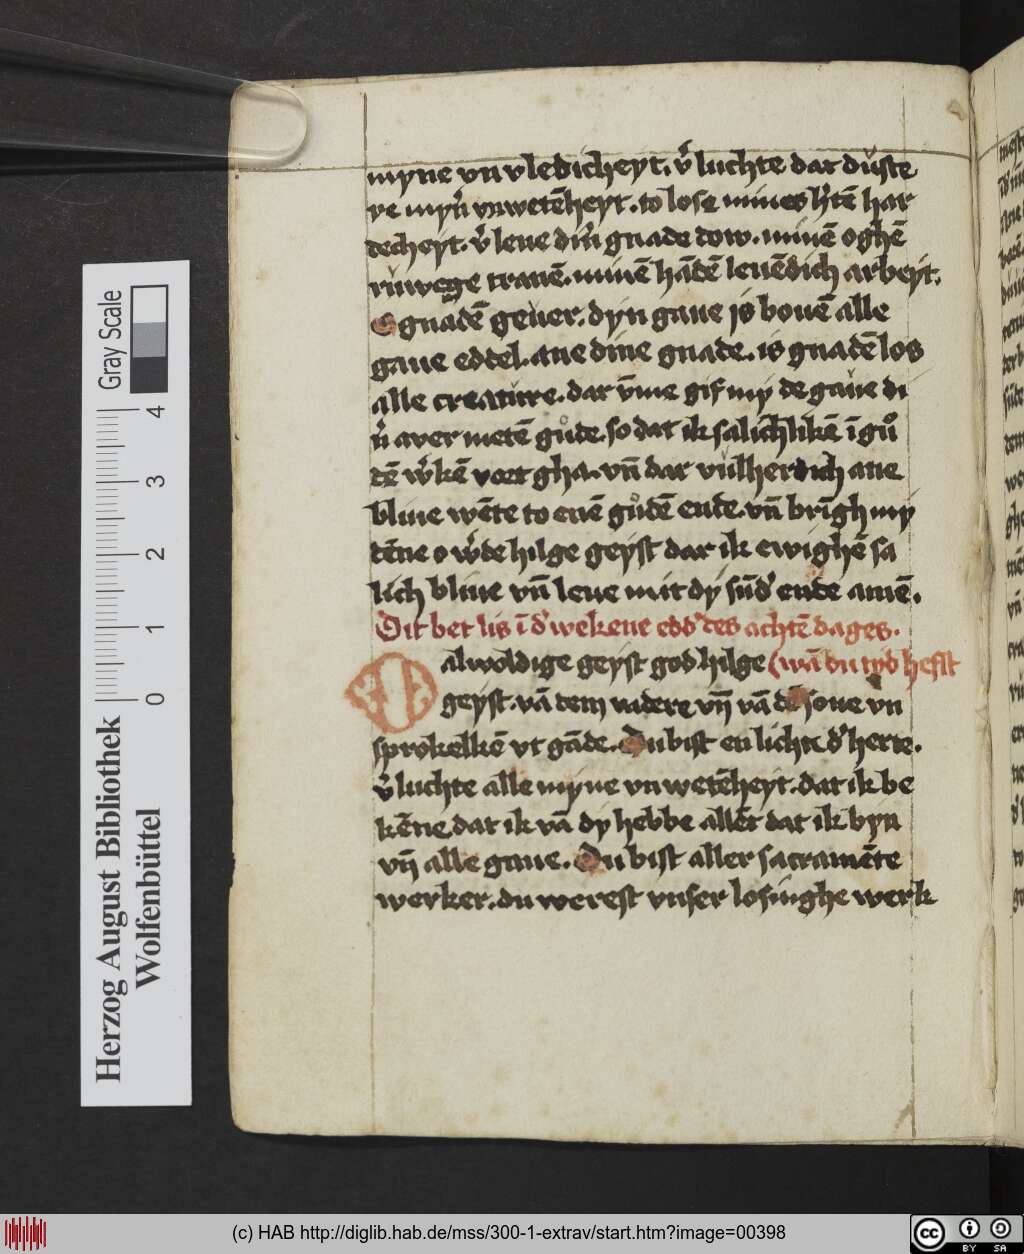 myne vn vledicheyt. v̉luchte dar důste
re myn̉ vnwetēheyt. to lose mines h̉tē har
decheyt. v̉ leue din̉ gnade tow. minē oghē
růwege tranē. minē hādē leuēdich arbeyt.
O gnadē geuer. dyn gaue js bouē alle
gaue eddel. ane dine gnade. is gnadēlos
alle creatůre. dar v̄me gif my de gaue di
n̉ aver metē gůde. so dat ik salichlikē ī gů
dē w̉kē vort gha. vn̄ dar vulherdich ane
bliue wēte to enē gůdē ende. vn̄ brīgh my
dēne o w̉de hilge geyst dar ik ewighē sa
lich bliue vn̄ leue mit dy sūd̉ ende amē.
Dit bet lis ī d̉ wekene edd̉ des achtē dages.
O alwoldige geyst god hilge (wā du tyd hefst
geyst. vā dem vadere vn̄ vā dē sone vn
sprokelkē vt gāde. Du bist en lichte d̉ herte.
v̉luchte alle myne vnwetēheyt. dat ik be
kēne dat ik vā dy hebbe allēt dat ik byn
vn̄ alle gaue. Du bist aller sacramēte
werker. du werest vnser losinghe werk
Herzog August Bibliothek
Wolfenbüttel
Gray Scale
0 1 2 3 4
(c) HAB http://diglib.hab.de/mss/300-1-extrav/start.htm?image=00398
cc BY SA